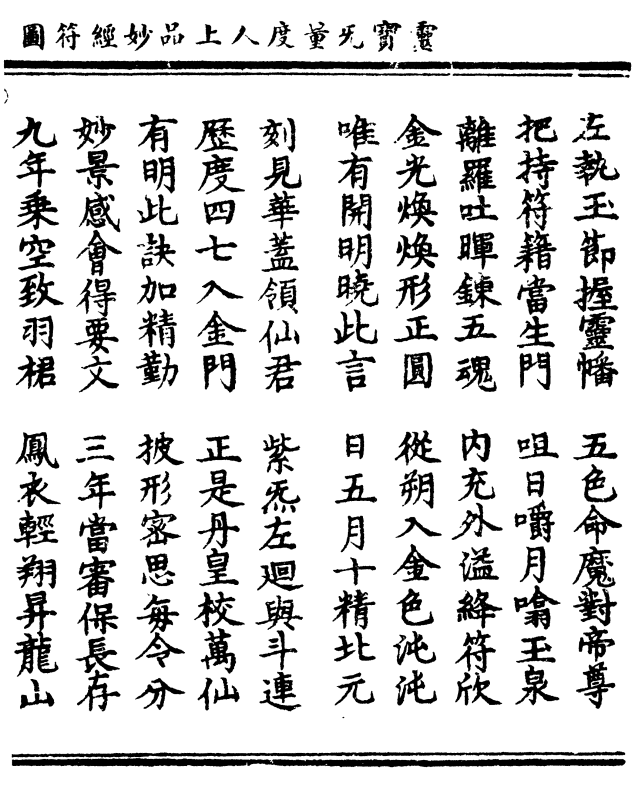 靈寶无量度人上品妙經符圖
左執玉節握靈幡　五色命魔對帝尊
把持符籍當生門　咀日嚼月噏玉泉
離羅吐暉鍊五魂　內充外溢絳符欣
金光煥煥形正圓　從朔入金色沌沌
唯有開明曉此言　日五月十精北元
刻見華蓋領仙君　紫炁左廻與斗連
歷度四七入金門　正是丹皇校萬仙
有明此訣加精勤　披形密思每令分
妙景感會得要文　三年當審保長存
九年乗空致羽裙　鳳衣輕翔昇龍山